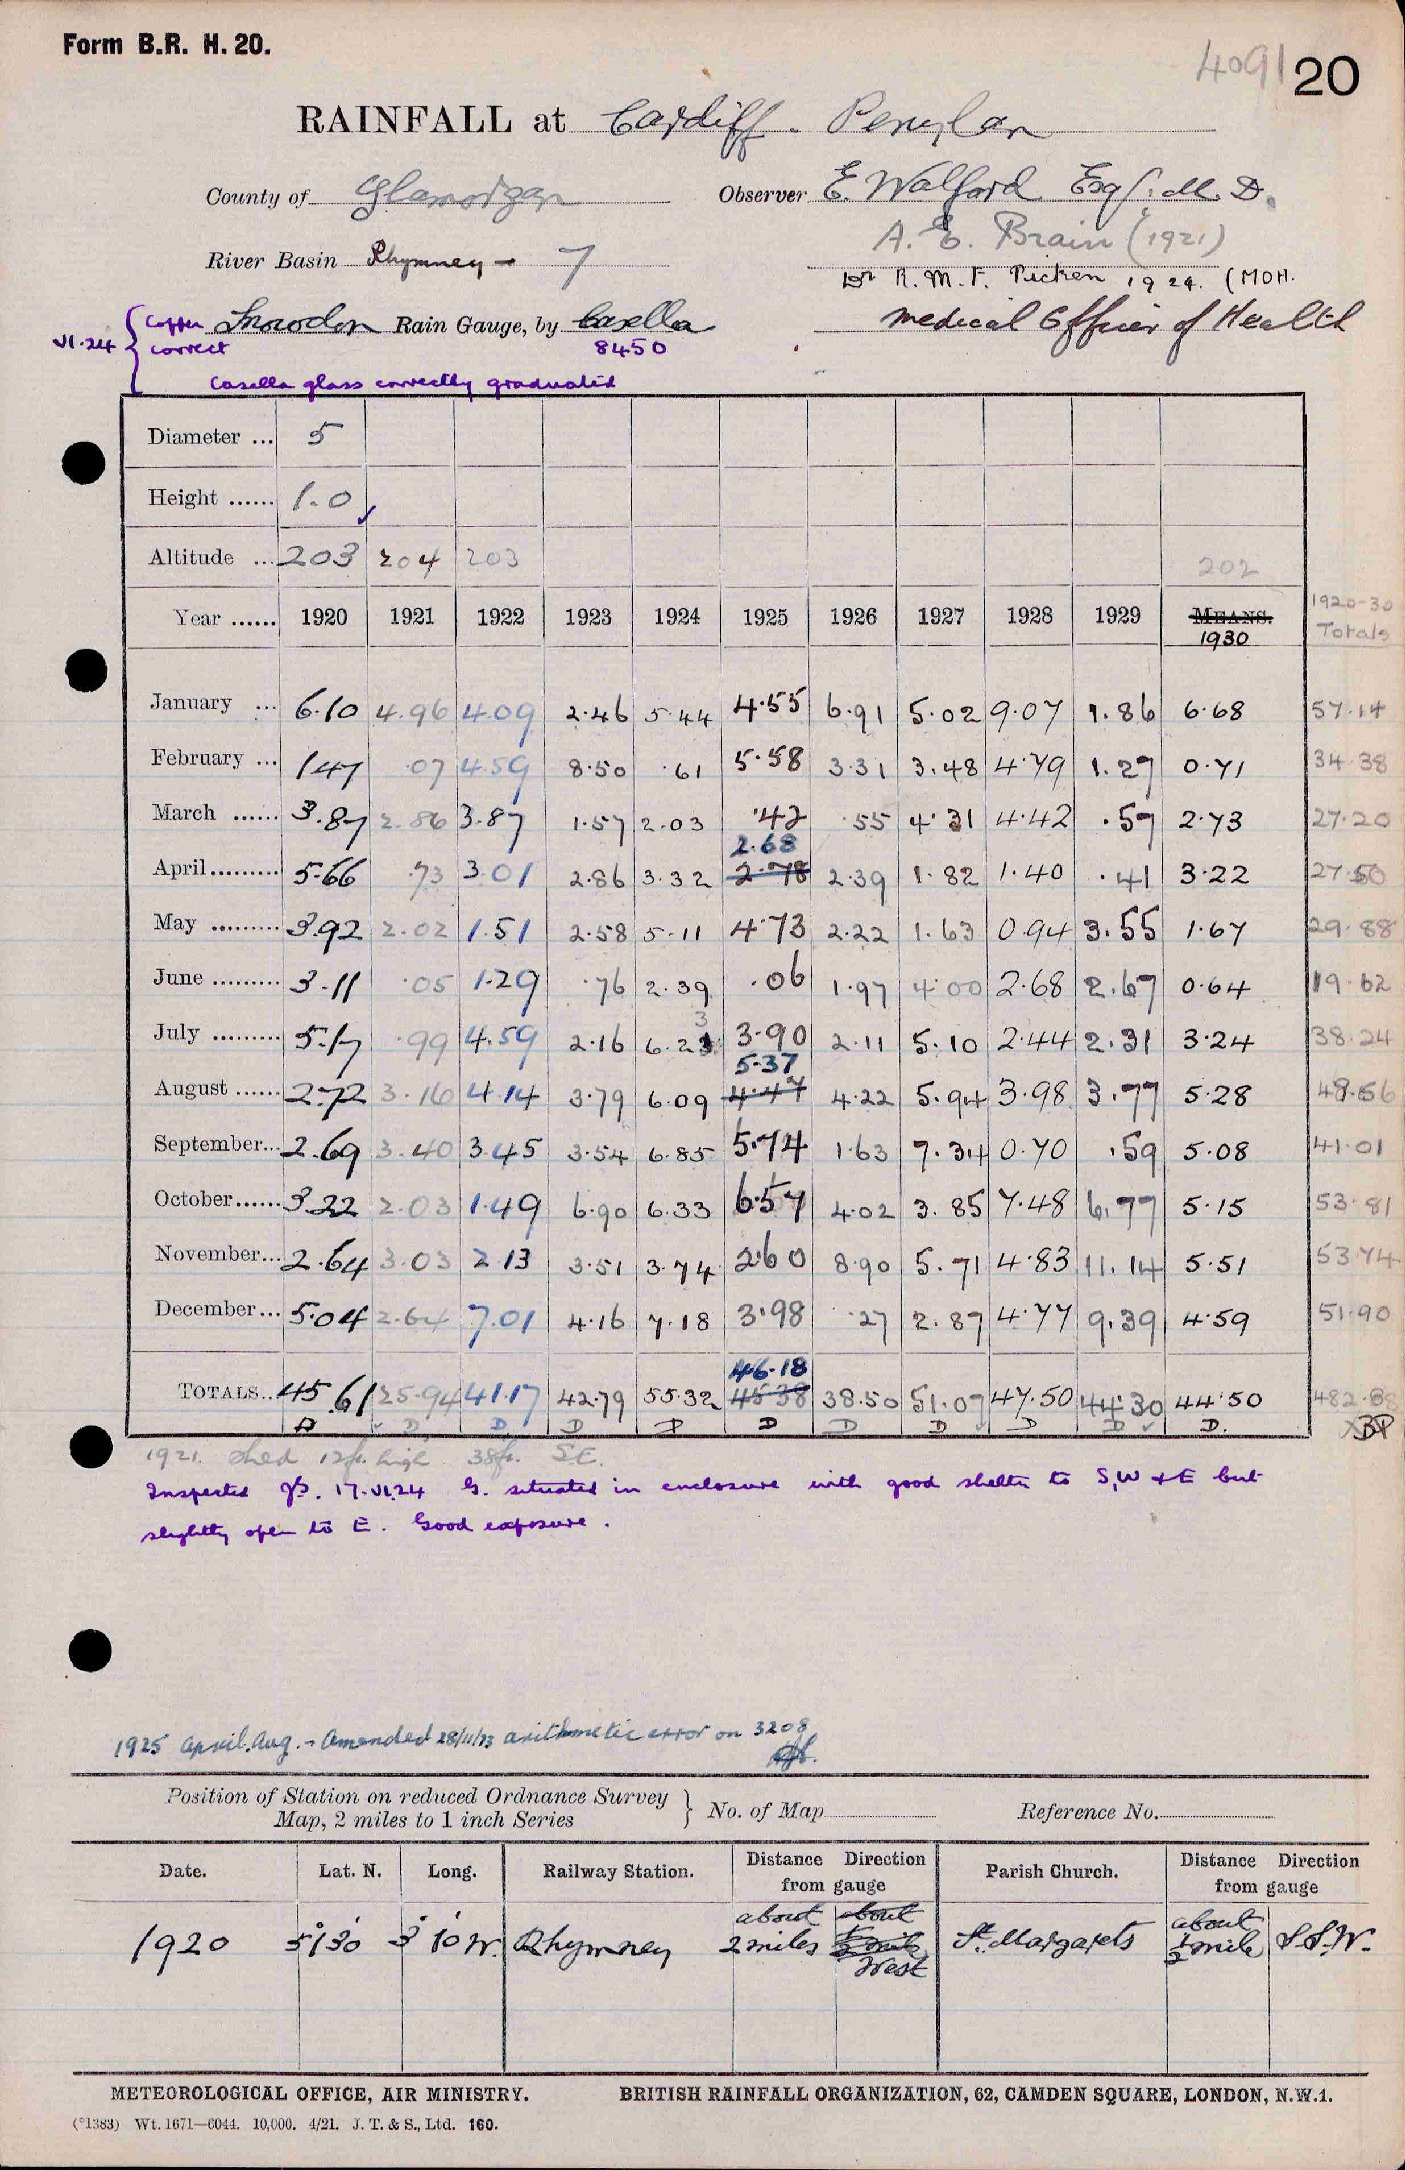 Form B.R. H. 20.
4091 20
RAINFALL at Cardiff - Penylan
County of Glamorgan Observer E. Walford Esq., M.D.
A. E. Brain (1921)
River Basin Rhymney - 7
Dr R. M. F. Picken 1924. (MOH.
Copper Snowdon Rain Gauge, by Casella Medical Officer of Health
VI.24 correct 8450
Casella glass correctly graduated
Diameter ... 5
Height ...... 1.0
Altitude ... 203 204 203 202
Year ...... 1920 1921 1922 1923 1924 1925 1926 1927 1928 1929 MEANS. 1930 1920-30 Totals
January ... 6.10 4.96 4.09 2.46 5.44 4.55 6.91 5.02 9.07 1.86 6.68 57.14
February ... 1.47 .07 4.59 8.50 .61 5.58 3.31 3.48 4.79 1.27 0.71 34.38
March ...... 3.87 2.86 3.87 1.57 2.03 .42 .55 4.31 4.42 .57 2.73 27.20
2.68
April......... 5.66 .73 3.01 2.86 3.32 2.78 2.39 1.82 1.40 .41 3.22 27.50
May ......... 3.92 2.02 1.51 2.58 5.11 4.73 2.22 1.63 0.94 3.55 1.67 29.88
June ......... 3.11 .05 1.29 .76 2.39 .06 1.97 4.00 2.68 2.67 0.64 19.62
3
July ......... 5.17 .99 4.59 2.16 6.23 3.90 2.11 5.10 2.44 2.31 3.24 38.24
5.37
August ...... 2.72 3.16 4.14 3.79 6.09 4.47 4.22 5.94 3.98 3.77 5.28 48.56
September... 2.69 3.40 3.45 3.54 6.85 5.74 1.63 7.34 0.70 .59 5.08 41.01
October...... 3.22 2.03 1.49 6.90 6.33 6.57 4.02 3.85 7.48 6.77 5.15 53.81
November... 2.64 3.03 2.13 3.51 3.74 2.60 8.90 5.71 4.83 11.14 5.51 53.74
December... 5.04 2.64 7.01 4.16 7.18 3.98 .27 2.87 4.77 9.39 4.59 51.90
46.18
TOTALS.. 45.61 25.94 41.17 42.79 55.32 45.38 38.50 51.07 47.50 44.30 44.50 482.88
D D D D D D D D D D D.
1921. Shed 12ft. high 38ft. S.E.
Inspected 17.VI.24 G. situated in enclosure with good shelter to S, W & E but
slightly open to E. Good exposure.
1925 April. Aug. - Amended 28/11/73 arithmetic error on 3208
Position of Station on reduced Ordnance Survey
Map, 2 miles to 1 inch Series } No. of Map Reference No.
Date. Lat. N. Long. Railway Station. Distance Direction from gauge Parish Church. Distance Direction from gauge
1920 51°30' 3°10' W. Rhymney about 2 miles about West St. Margarets about 1/2 mile S.S.W.
METEOROLOGICAL OFFICE, AIR MINISTRY. BRITISH RAINFALL ORGANIZATION, 62, CAMDEN SQUARE, LONDON, N.W.1.
(*1383) Wt. 1671—6044. 10,000. 4/21. J. T. & S., Ltd. 160.